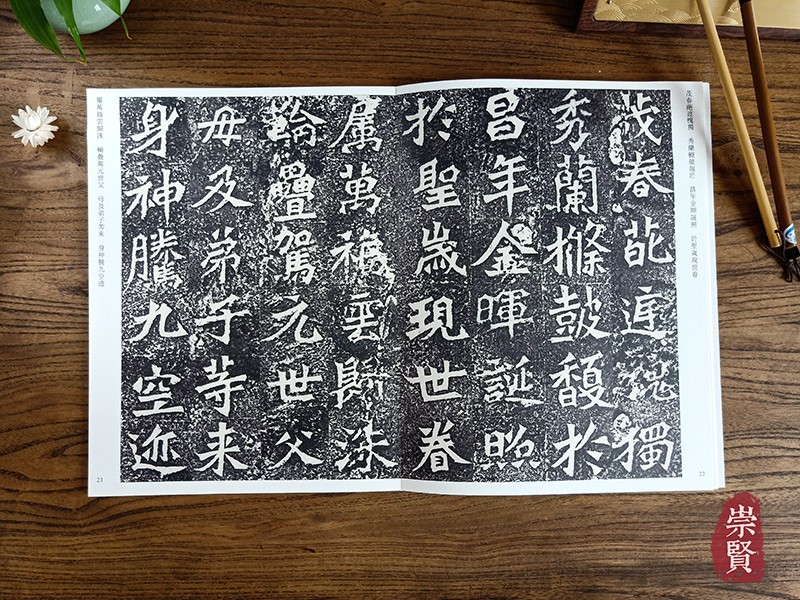 茂春葩庭槐獨 秀蘭條鼓馥於 昌年金暉誕照 於聖歲現世眷
茂春葩庭槐獨
秀蘭條鼓馥於
昌年金暉誕照
於聖歲現世眷
22
屬萬福雲歸洙
輪疊駕元世父
母及弟子等来
身神騰九空迹
屬萬福雲歸洙 輪疊駕元世父 母及弟子等来 身神騰九空迹
23
崇賢